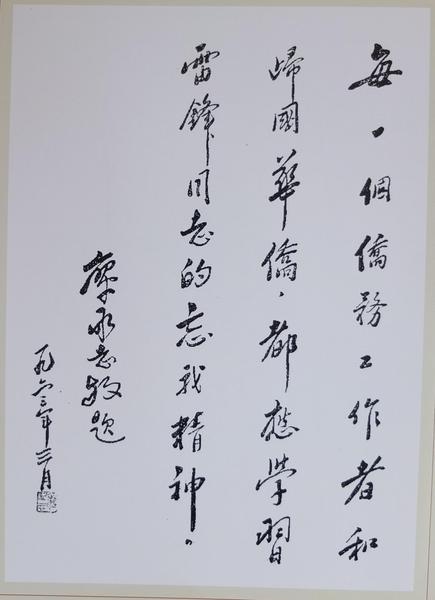 每一個僑務工作者和
歸國華僑，都應學習
雷鋒同志的忘我精神。
廖承志敬題
一九六三年三月